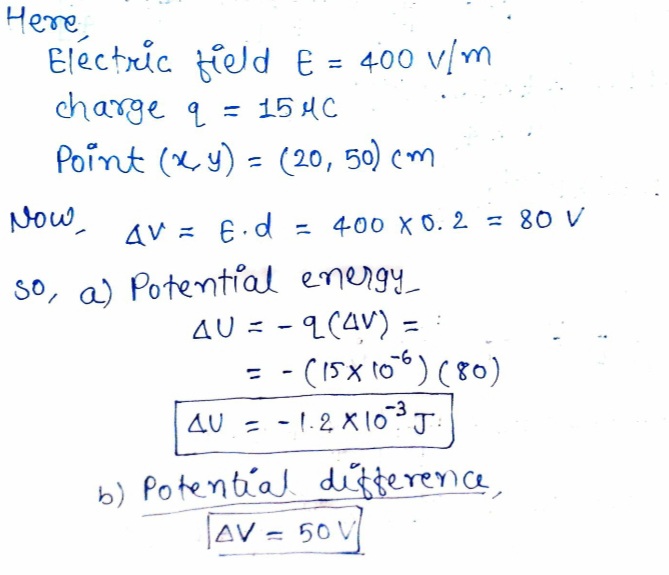 Here,
Electric field E = 400 V/m
charge q = 15 μC
Point (x, y) = (20, 50) cm
Now, ΔV = E.d = 400 x 0.2 = 80 V
so, a) Potential energy
ΔU = - q(ΔV) =
= - (15 x 10⁻⁶) (80)
ΔU = - 1.2 x 10⁻³ J.
b) Potential difference,
ΔV = 50 V